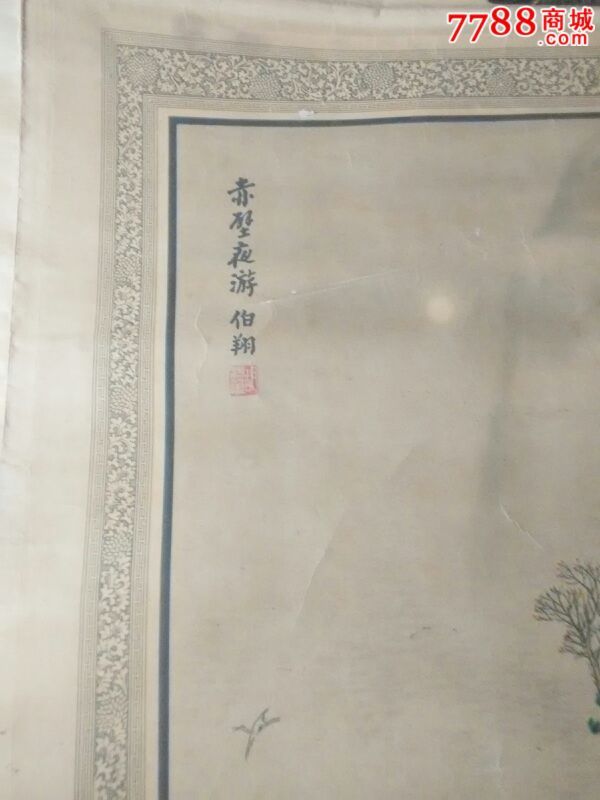 7788商城
.com
赤壁夜游 伯翔